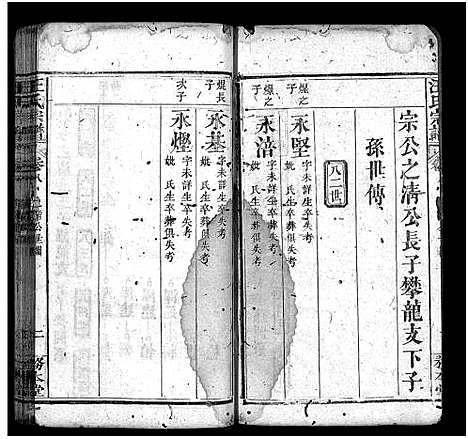 汪氏宗譜
宗公之清公長子攀龍支下子
孫世傳
八二世
煌之子
永堅
字未詳生卒葬俱失考
煖之子
永涪
字未詳生卒葬俱失考
妣 氏生卒葬俱失考
焜長子
永基
字未詳生卒葬俱失考
妣 氏生卒葬俱失考
次子
永燈
字未詳生卒葬俱失考
妣 氏生卒葬俱失考
汪氏宗譜
務本堂